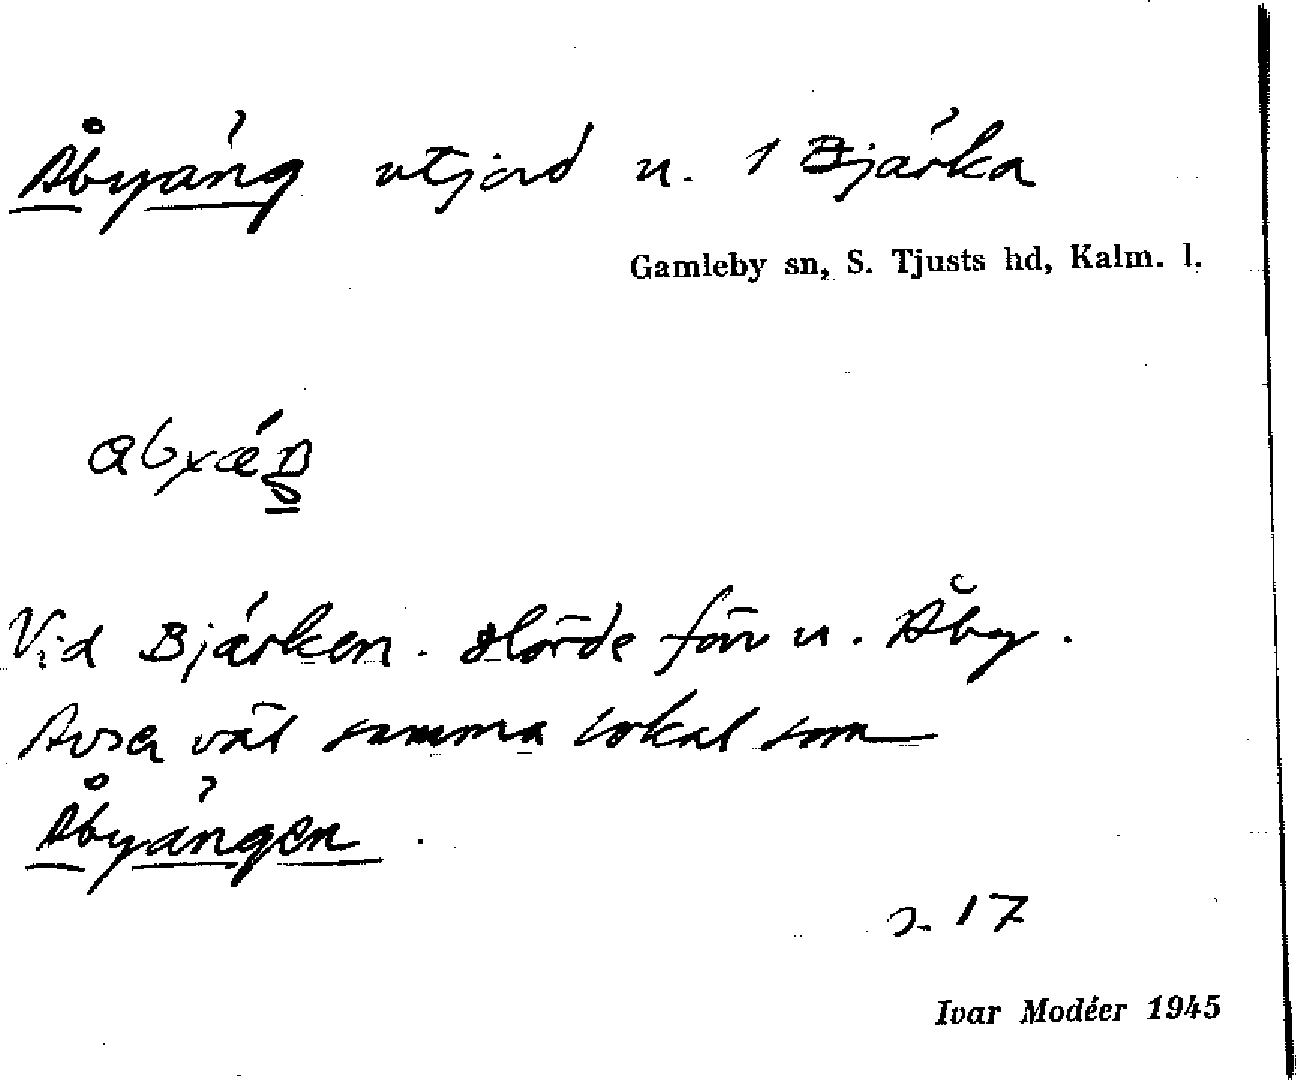 Åbyäng utjord u. 1 Bjärka
Gamleby sn, S. Tjusts hd, Kalm. l.
Vid Bjärken. Hörde förr u. Åby.
Avser väl samma lokal som
Åbyängen.
s. 17
Ivar Modéer 1945